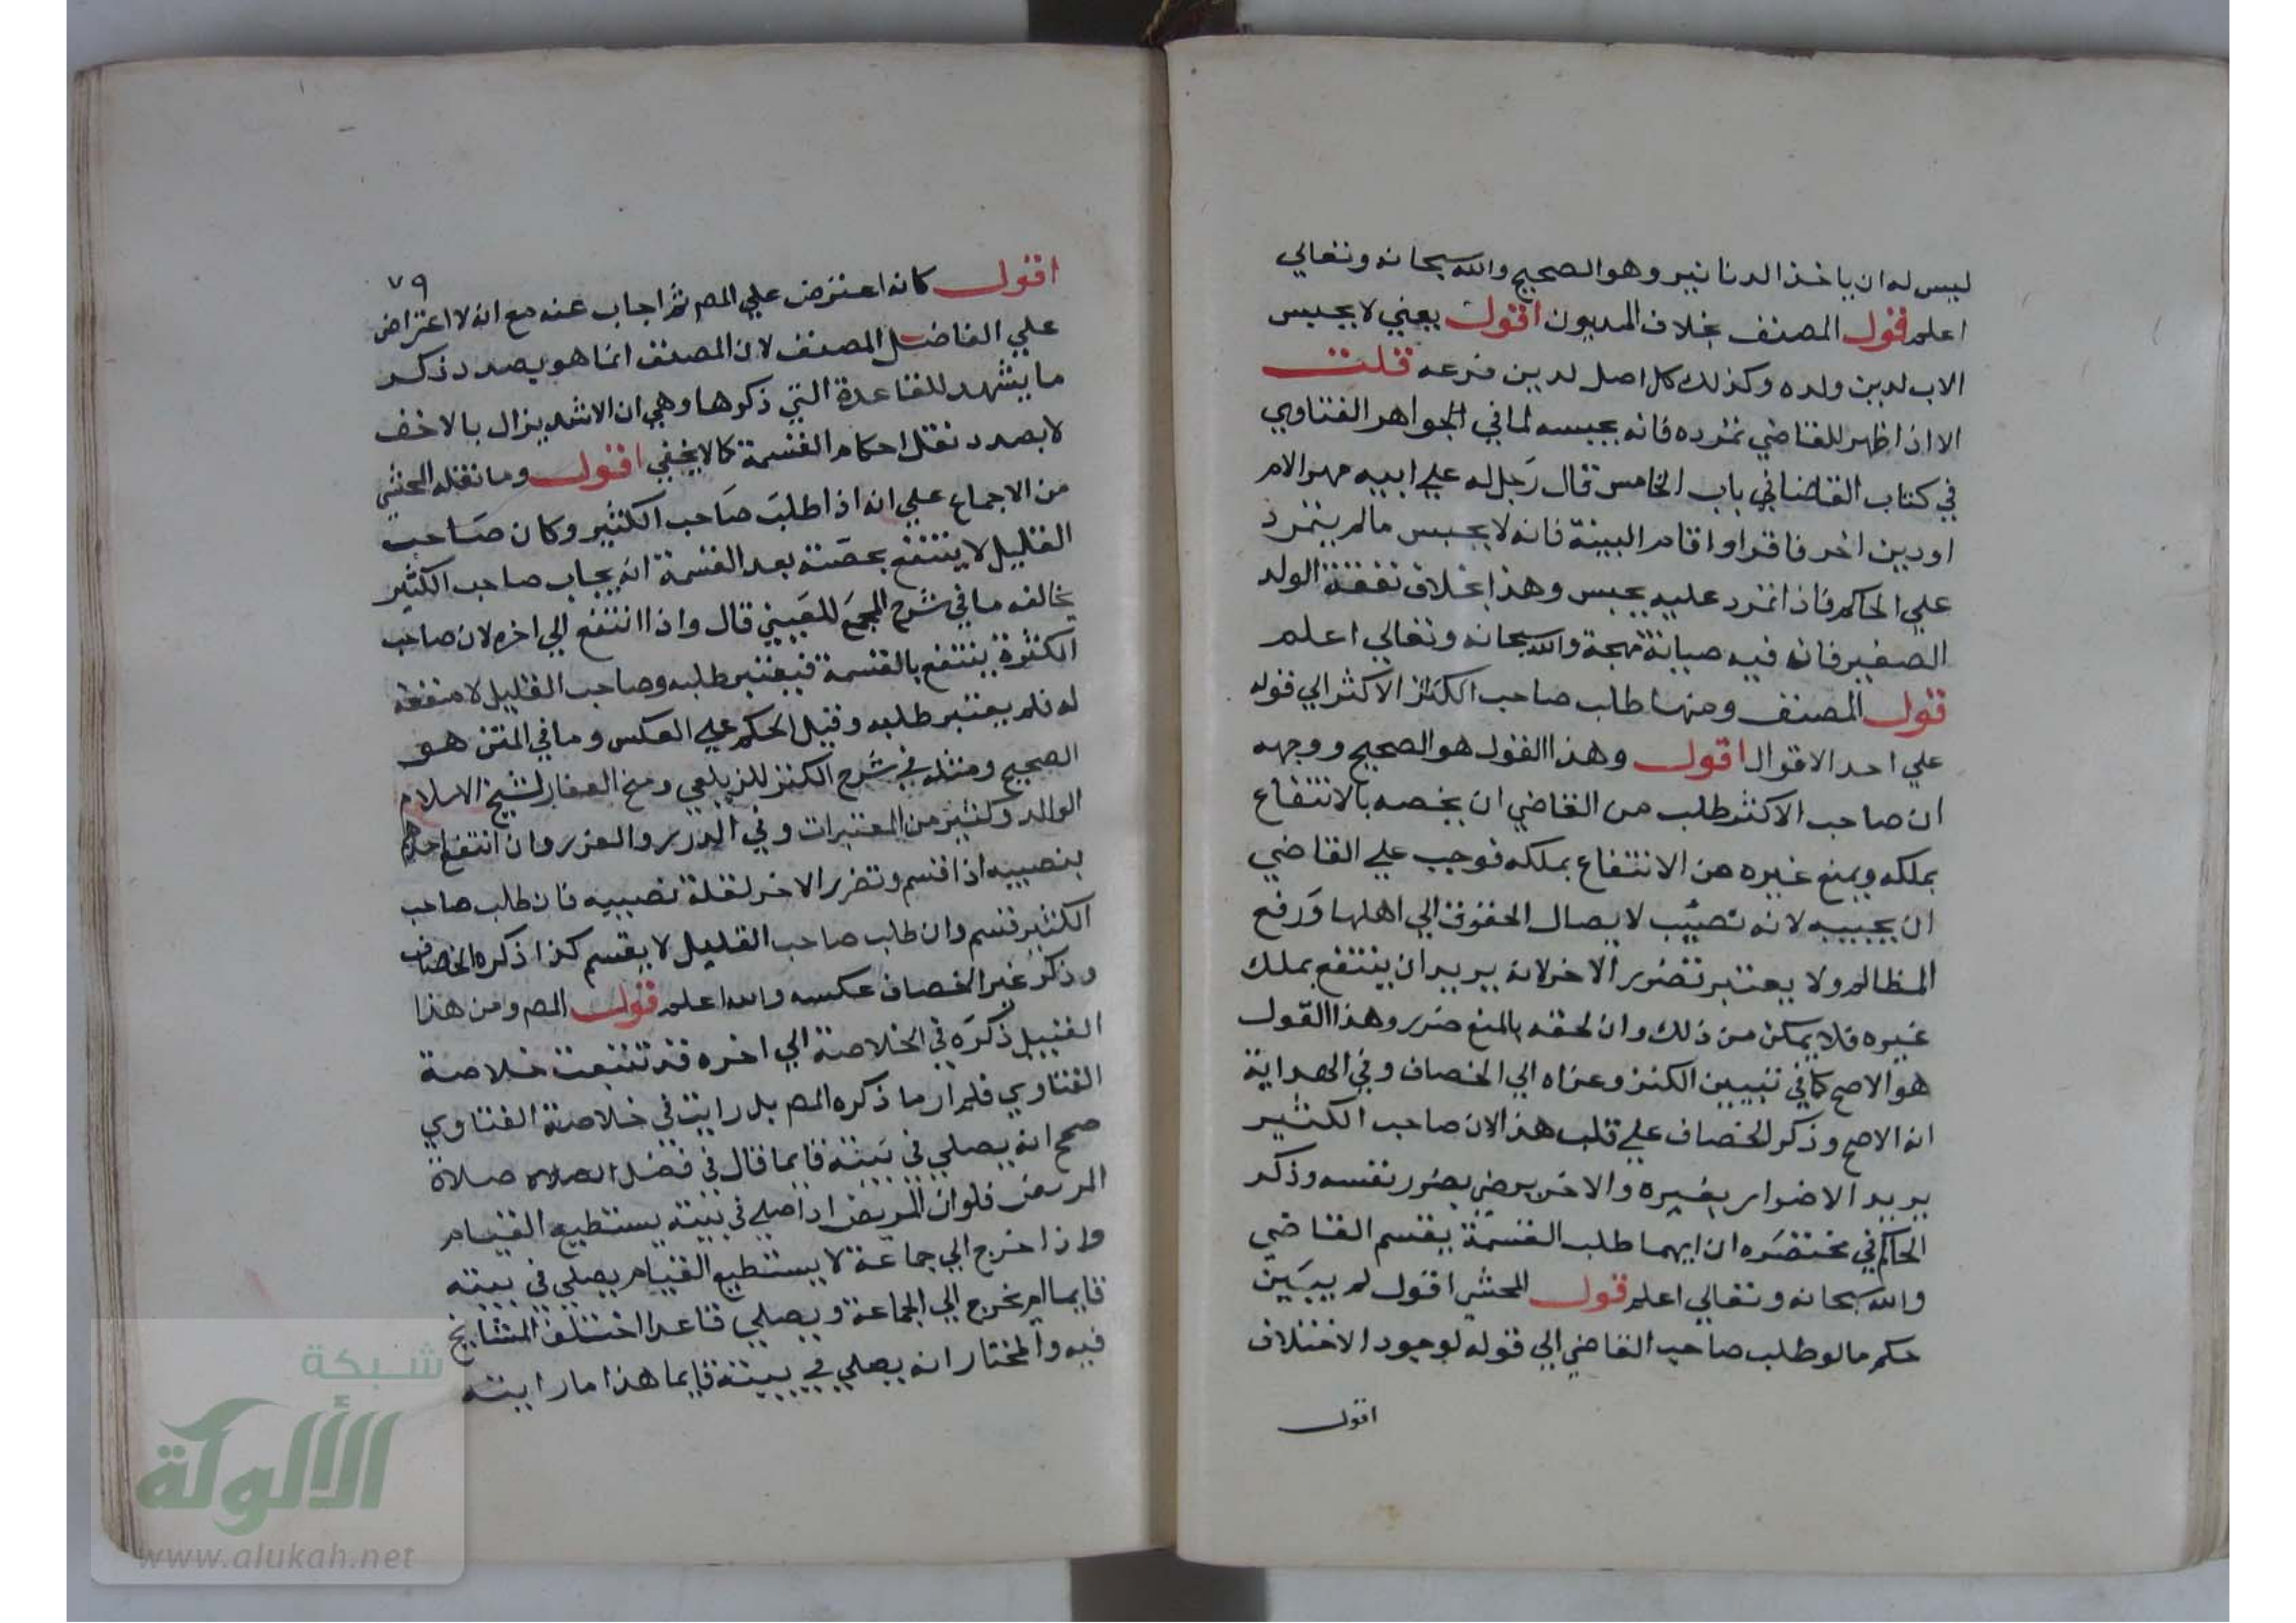 ليس له ان ياخذ الدنانير وهو الصحيح والله سبحانه وتعالي
اعلم قول المصنف بخلاف المديون اقول يعني لا يحبس
الاب لدين ولده وكذلك كل اصل لدين فرعه قلت
الا اذا ظهر للقاضي تمرده فانه يحبسه لما في الجواهر الفتاوي
في كتاب القضا في باب الخامس قال رجل له علي ابيه مهر الام
او دين اخر فاقر او اقام البينة فانه لا يحبس ما لم يتمرد
علي الحاكم فاذا تمرد عليه يحبس وهذا بخلاف نفقة الولد
الصغير فان فيه صيانة مهجة والله سبحانه وتعالي اعلم
قول المصنف ومنها طلب صاحب الاكثر الي قوله
علي احد الاقوال اقول وهذا القول هو الصحيح ووجهه
ان صاحب الاكثر طلب من القاضي ان يخصه بالانتفاع
بملكه ويمنع غيره من الانتفاع بملكه فوجب علي القاضي
ان يجيبه لانه نصيب لايصال الحقوق الي اهلها ورفع
المظالم ولا يعتبر تضرر الاخر لانه يريد ان ينتفع بملك
غيره فلا يمكن من ذلك وان لحقه بالمنع ضرر وهذا القول
هو الاصح كما في تبيين الكنز وعزاه الي الخصاف وفي الهداية
انه الاصح وذكر الخصاف علي قلب هذا لان صاحب الكثير
يريد الاضرار بغيره والاخر يرضي بضرر نفسه وذكر
الحاكم في مختصره ان ايهما طلب القسمة يقسم القاضي
والله سبحانه وتعالي اعلم قول المحشي اقول لم يبين
حكم ما لو طلب صاحب القاضي الي قوله لوجود الاختلاف
اقول
٧٩
اقول كانه اعترض علي المص ثم اجاب عنه مع انه لا اعتراض
علي الفاضل المصنف لان المصنف انما هو بصدد ذكر
ما يشهد للقاعدة التي ذكرها وهي ان الاشد يزال بالاخف
لا بصدد نقل احكام القسمة كما لا يخفي اقول وما نقله المحشي
من الاجماع علي انه اذا طلب صاحب الكثير وكان صاحب
القليل لا ينتفع بحصته بعد القسمة انه يجاب صاحب الكثير
يخالفه ما في شرح المجمع للعيني قال واذا انتفع الي اخره لان صاحب
الكثرة ينتفع بالقسمة فيعتبر طلبه وصاحب القليل لا منفعة
له فلم يعتبر طلبه وقيل الحكم علي العكس وما في المتن هو
الصحيح ومثله في شرح الكنز للزيلعي ومنح الغفار لشيخ الاسلام
الوالد وكثير من المعتبرات وفي الدرر والغرر وان انتفع احدهم
بنصيبه اذا قسم وتضرر الاخر لقلة نصيبه فان طلب صاحب
الكثير قسم وان طلب صاحب القليل لا يقسم كذا ذكره الخصاف
وذكر غير الخصاف عكسه والله اعلم قول المص ومن هذا
القبيل ذكره في الخلاصة الي اخره قد تتبعت خلاصة
الفتاوي فلم ار ما ذكره المص بل رايت في خلاصة الفتاوي
صحح انه يصلي في بيته قايما قال في فصل الصلاة صلاة
المريض فلو ان المريض اذا صلي في بيته يستطيع القيام
واذا خرج الي جماعة لا يستطيع القيام يصلي في بيته
قايما ام يخرج الي الجماعة ويصلي قاعدا اختلف المشايخ
فيه والمختار انه يصلي في بيته قايما هذا ما رايته
شبكة
الألوكة
www.alukah.net